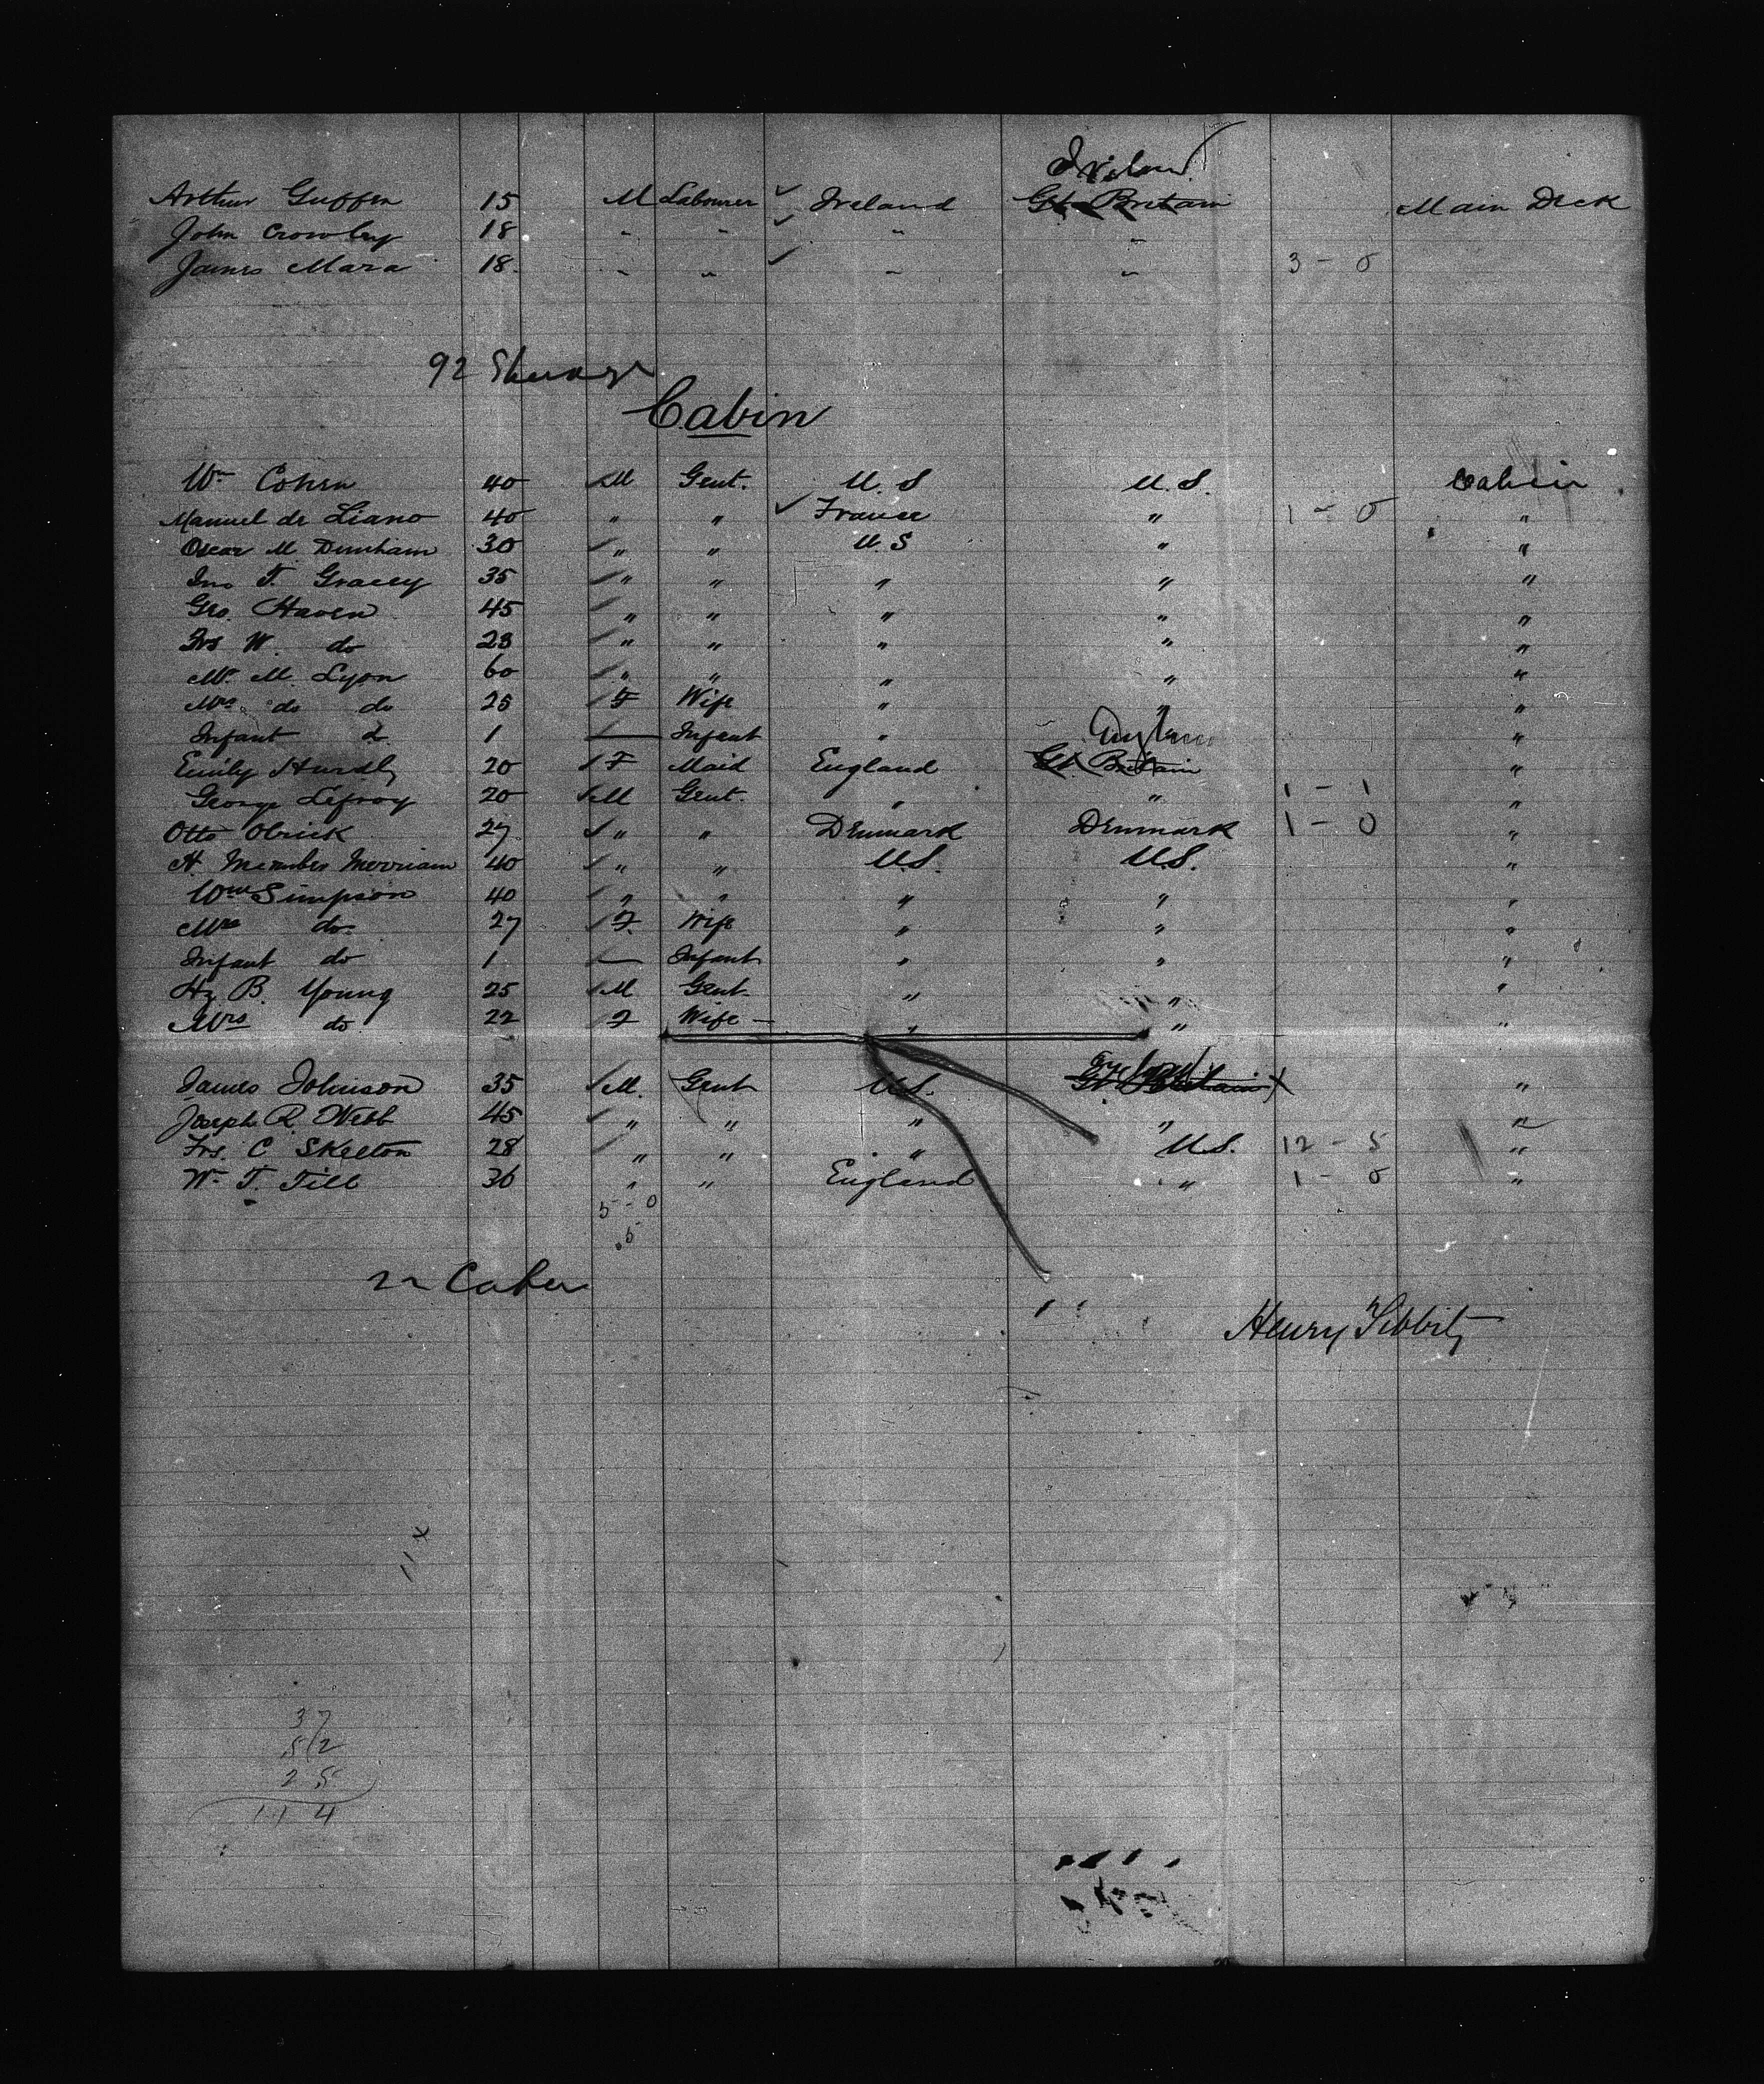 Ireland
Arthur Guffen 15 M Labourer ✓ Ireland Gt. Britain Main Deck
John Crowley 18 " " ✓ " "
James Mara 18. " " ✓ " " 3 - 0
92 Steerage
Cabin
Wm Cohen 40 M Gent. U. S U. S. Cabin
Manuel de Liano 40 " " ✓ France " 1 - 0 "
Oscar M Dunham 30 " " U. S " "
Jno T. Gracey 35 " " " " "
Geo. Haven 45 " " " " "
W. do 23 " " " " "
Mr. M. Lyon 60 " " " " "
Mrs do do 25 F Wife " " "
Infant d. 1 — Infant " England "
Emily 20 F Maid England Gt. Britain "
George Lefroy 20 M Gent. " " 1 - 1 "
Otto Obrick 27 " " Denmark Denmark 1 - 0 "
H. Merriam 40 " " U.S. U.S. "
Wm Simpson 40 " " " " "
Mrs do. 27 F. Wife " " "
Infant do 1 — Infant " " "
Hy B. Young 25 M Gent. " " "
Mrs do 22 F Wife — " " "
James Johnson 35 M. Gent U.S. Gt. Britain X "
Joseph R. Webb 45 " " " " "
Frs. C Skelton 28 " " " U.S. 12 - 5 "
Wm T. Till 36 " " England " 1 - 0 "
5 - 0
.5
22 Cabin
Henry Tibbits
11 x
37
52
25
114